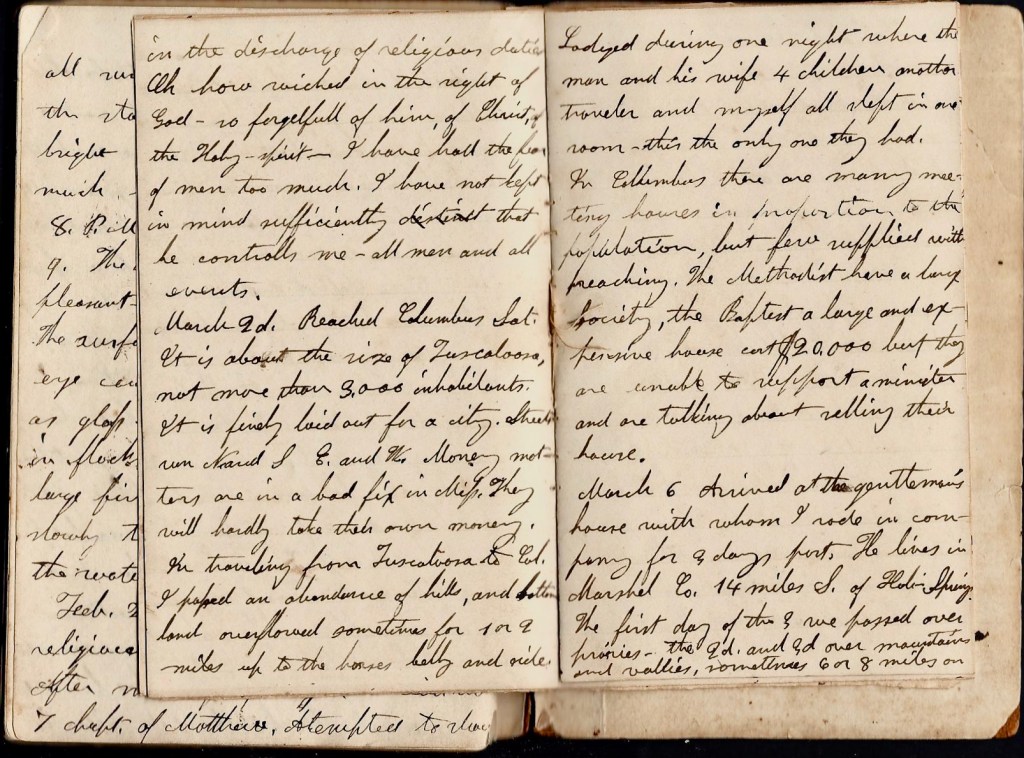 all
the sta
bright
much
8.
9. The
pleasant
The surfa
eye can
as glass
in flock
large fir
slowly t
the wate
Feb. 2
religious
After
7 chapt. of Matthew. Atempted to
in the discharge of religious duties
Oh how wicked in the sight of
God - so forgetfull of him, of Christ, of
the Holy - spirit - I have had the fear
of men too much. I have not kept
in mind sufficiently distinct that
he controlls me - all men and all
events.
March 2d. Reached Columbus Sat.
It is about the size of Tuscaloosa,
not more than 3,000 inhabitants.
It is finely laid out for a city. Streets
run N and S E. and W. Money mat-
ters are in a bad fix in Miss. They
will hardly take their own money.
In traveling from Tuscaloosa to Col.
I passed an abundance of hills, and bottom
land overflowed sometimes for 1 or 2
miles up to the horses belly and side.
Lodged during one night where the
man and his wife 4 children another
traveler and myself all slept in one
room - this the only one they had.
In Collumbus there are many mee-
ting houses in proportion to the
population, but few supplied with
preaching. The Methodist have a large
Society, the Baptist a large and ex-
pensive house cost $20,000 but they
are unable to support a minister
and are talking about selling their
house.
March 6 Arrived at the gentleman's
house with whom I rode in com-
pany for 3 days past. He lives in
Marshel Co. 14 miles S. of Holi Spring.
The first day of the 3 we passed over
praries - the 2d. and 3d over mountains
and vallies, sometimes 6 or 8 miles on